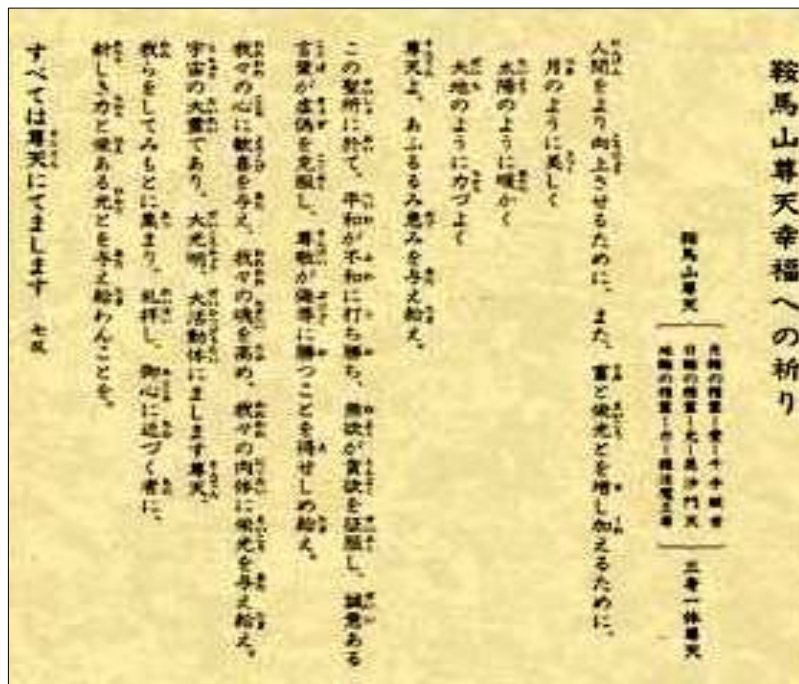 鞍馬山尊天幸福への祈り
鞍馬山尊天
月輪の精霊－愛－千手観音
日輪の精霊－光－毘沙門天
地輪の精霊－力－護法魔王尊
三身一体尊天
人間をより向上させるために、また、富と栄光とを増し加えるために、
月のように美しく
太陽のように暖かく
大地のように力づよく
尊天よ、あふるるみ恵みを与え給え。
この聖所に於て、平和が不和に打ち勝ち、無欲が貪欲を征服し、誠意ある
言葉が虚偽を克服し、尊敬が侮辱に勝つことを得せしめ給え。
我々の心に歓喜を与え、我々の魂を高め、我々の肉体に栄光を与え給え。
宇宙の大霊であり、大光明、大活動体にまします尊天、
我らをしてみもとに集まり、礼拝し、御心に近づく者に、
新しき力と栄ある光とを与え給わんことを。
すべては尊天にてまします 七反